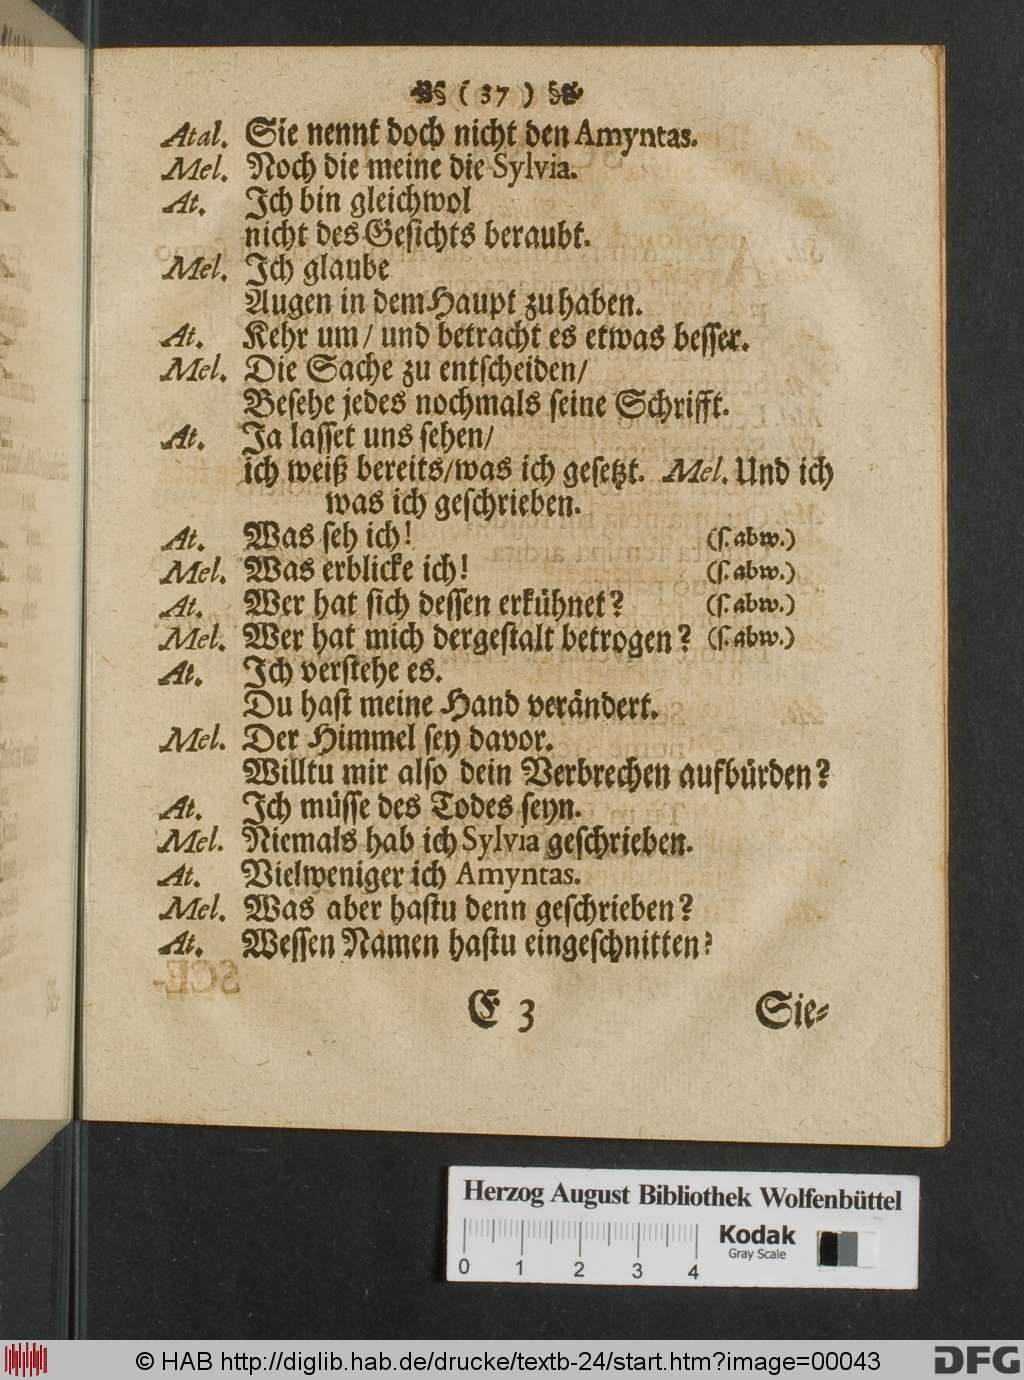 ( 37 )
Atal. Sie nennt doch nicht den Amyntas.
Mel. Noch die meine die Sylvia.
At. Ich bin gleichwol
nicht des Gesichts beraubt.
Mel. Ich glaube
Augen in dem Haupt zu haben.
At. Kehr um/ und betracht es etwas besser.
Mel. Die Sache zu entscheiden/
Besehe jedes nochmals seine Schrifft.
At. Ja lasset uns sehen/
ich weiß bereits/was ich gesetzt. Mel. Und ich
was ich geschrieben.
At. Was seh ich! (s. abw.)
Mel. Was erblicke ich! (s. abw.)
At. Wer hat sich dessen erkühnet? (s. abw.)
Mel. Wer hat mich dergestalt betrogen? (s. abw.)
At. Ich verstehe es.
Du hast meine Hand verändert.
Mel. Der Himmel sey davor.
Willtu mir also dein Verbrechen aufbürden?
At. Ich müsse des Todes seyn.
Mel. Niemals hab ich Sylvia geschrieben.
At. Vielweniger ich Amyntas.
Mel. Was aber hastu denn geschrieben?
At. Wessen Namen hastu eingeschnitten?
E 3 Sie-
Herzog August Bibliothek Wolfenbüttel
Kodak
Gray Scale
0 1 2 3 4
© HAB http://diglib.hab.de/drucke/textb-24/start.htm?image=00043
DFG